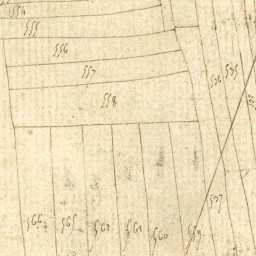 554
555
556
557
558
536
535
537
566
565
562
561
560
559